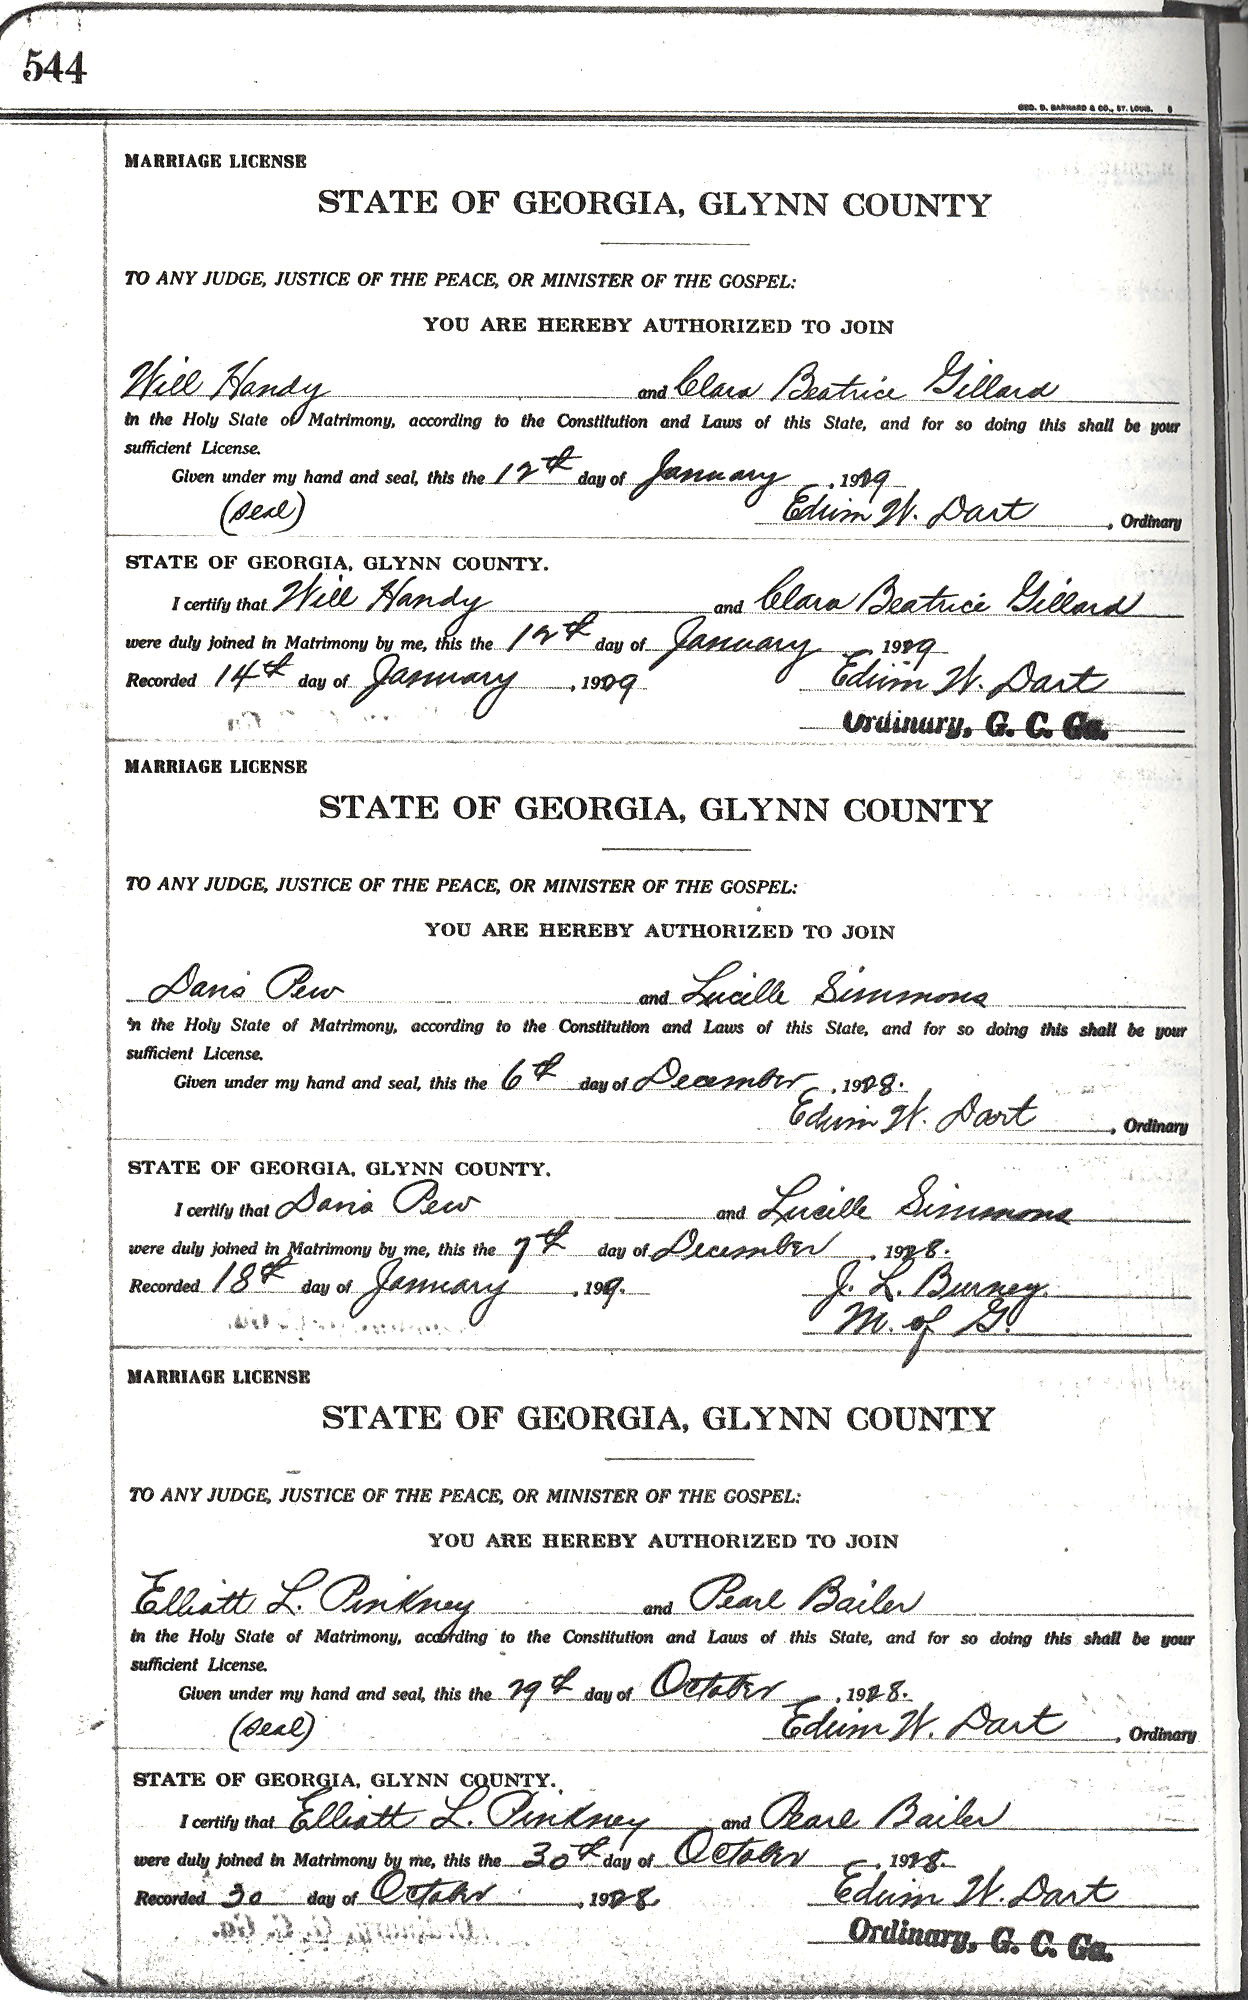 544
GEO. D. BARNARD & CO., ST. LOUIS.
MARRIAGE LICENSE
STATE OF GEORGIA, GLYNN COUNTY
TO ANY JUDGE, JUSTICE OF THE PEACE, OR MINISTER OF THE GOSPEL:
YOU ARE HEREBY AUTHORIZED TO JOIN
Will Handy and Clara Beatrice Gillard
in the Holy State of Matrimony, according to the Constitution and Laws of this State, and for so doing this shall be your
sufficient License.
Given under my hand and seal, this the 12th day of January, 1929
(seal) Edwin W. Dart, Ordinary
STATE OF GEORGIA, GLYNN COUNTY.
I certify that Will Handy and Clara Beatrice Gillard
were duly joined in Matrimony by me, this the 12th day of January, 1929
Recorded 14th day of January, 1929 Edwin W. Dart
Ordinary, G. C. Ga.
MARRIAGE LICENSE
STATE OF GEORGIA, GLYNN COUNTY
TO ANY JUDGE, JUSTICE OF THE PEACE, OR MINISTER OF THE GOSPEL:
YOU ARE HEREBY AUTHORIZED TO JOIN
Davis Pew and Lucille Simmons
in the Holy State of Matrimony, according to the Constitution and Laws of this State, and for so doing this shall be your
sufficient License.
Given under my hand and seal, this the 6th day of December, 1928.
Edwin W. Dart, Ordinary
STATE OF GEORGIA, GLYNN COUNTY.
I certify that Davis Pew and Lucille Simmons
were duly joined in Matrimony by me, this the 7th day of December, 1928.
Recorded 18th day of January, 199. J. L. Burney
M. of G.
MARRIAGE LICENSE
STATE OF GEORGIA, GLYNN COUNTY
TO ANY JUDGE, JUSTICE OF THE PEACE, OR MINISTER OF THE GOSPEL:
YOU ARE HEREBY AUTHORIZED TO JOIN
Elliott L. Pinkney and Pearl Bailer
in the Holy State of Matrimony, according to the Constitution and Laws of this State, and for so doing this shall be your
sufficient License.
Given under my hand and seal, this the 29th day of October, 1928.
(seal) Edwin W. Dart, Ordinary
STATE OF GEORGIA, GLYNN COUNTY.
I certify that Elliott L. Pinkney and Pearl Bailer
were duly joined in Matrimony by me, this the 30th day of October, 1928.
Recorded 30 day of October, 1928 Edwin W. Dart
Ordinary, G. C. Ga.